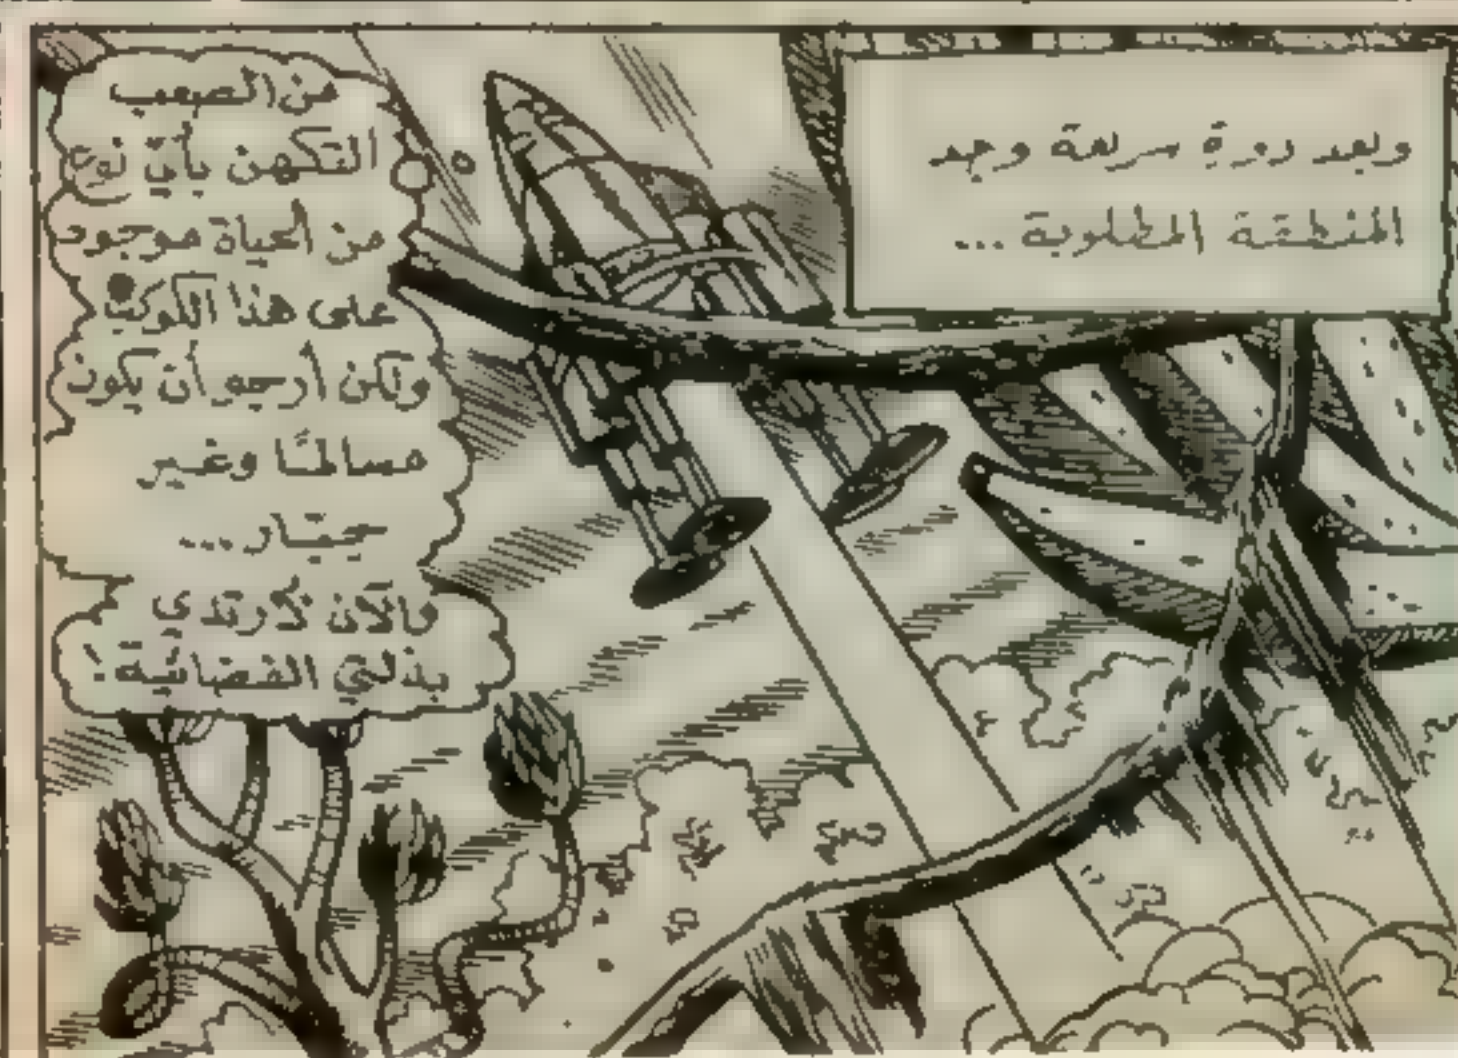 وبعد دورةٍ سريعة وجد
المنطقة المطلوبة ...
من الصعب
التكهن بأيّ نوع
من الحياة موجود
على هذا الكوكب
ولكن أرجو أن يكون
مسالمًا وغير
جبّار ...
والآن لأرتدي
بذلتي الفضائية!